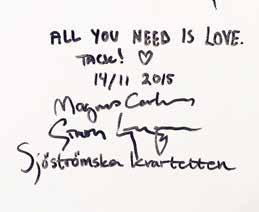 ALL YOU NEED IS LOVE.
TACK! ♡
14/11 2015
Magnus
Simon
Sjöströmska kvartetten